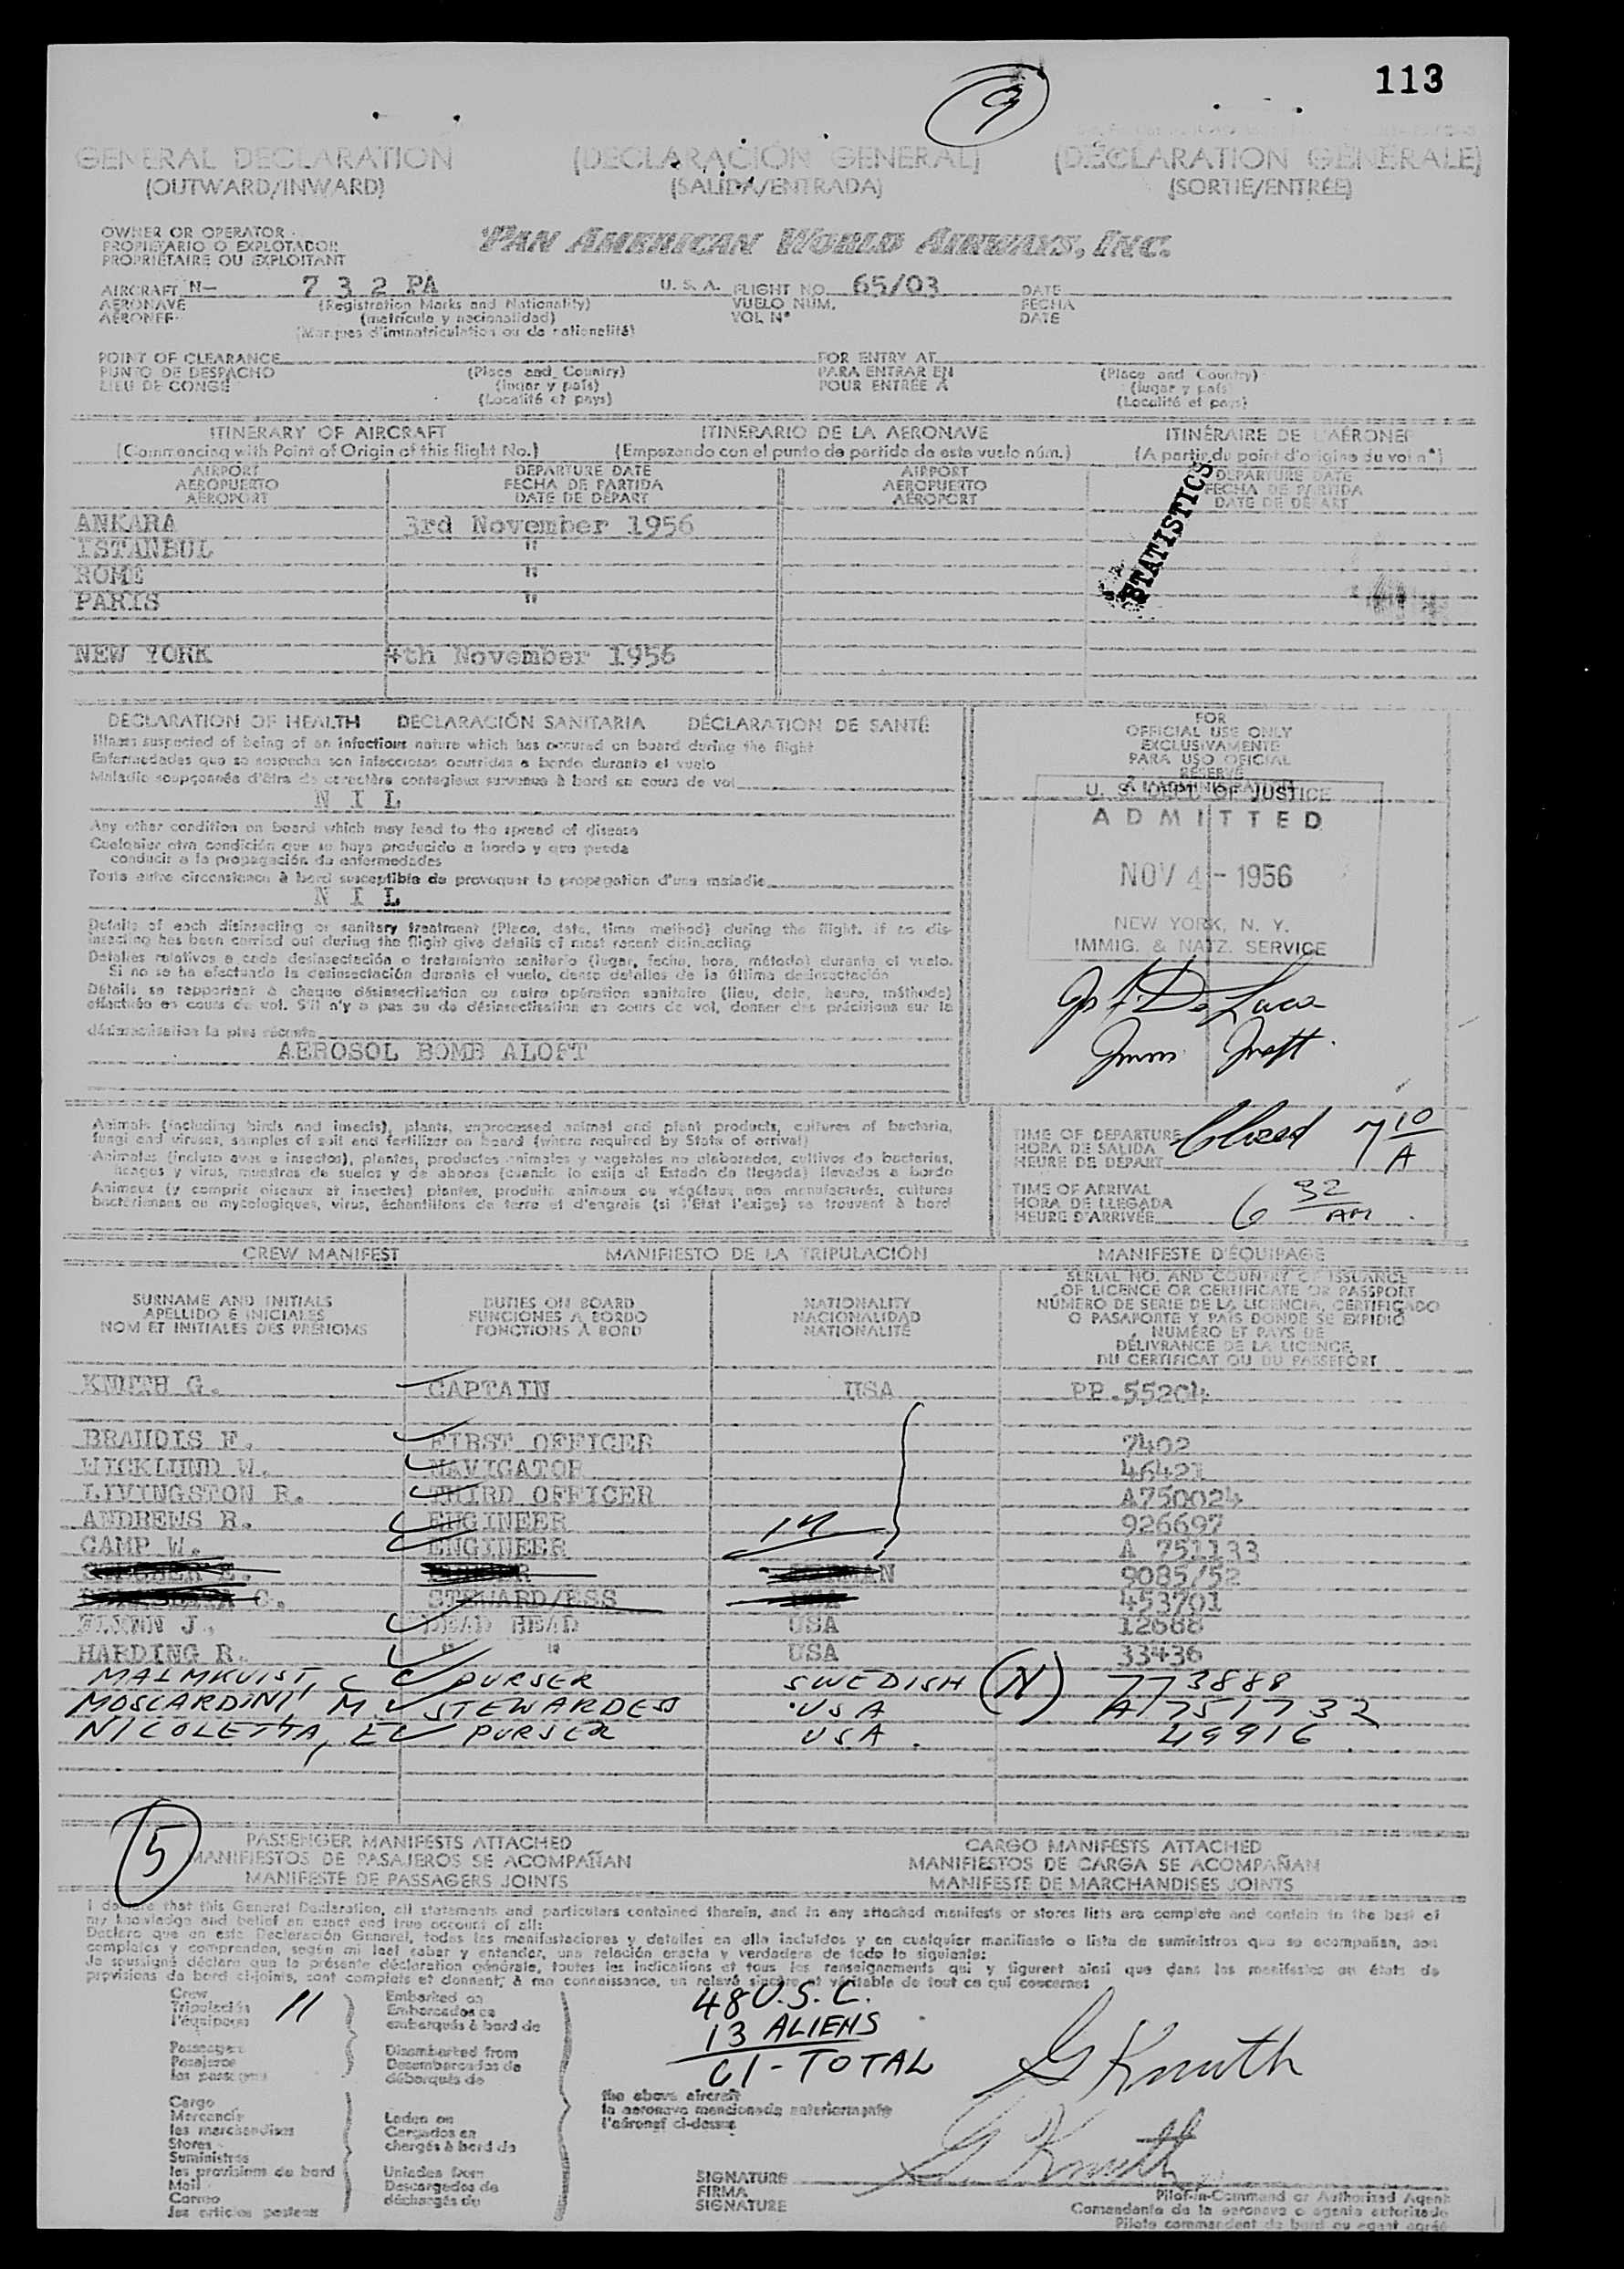 113
9
GENERAL DECLARATION (DECLARACIÓN GENERAL) (DÉCLARATION GÉNÉRALE)
(OUTWARD/INWARD) (SALIDA/ENTRADA) (SORTIE/ENTRÉE)
OWNER OR OPERATOR
PROPIETARIO O EXPLOTADOR
PROPRIÉTAIRE OU EXPLOITANT
PAN AMERICAN WORLD AIRWAYS, INC.
AIRCRAFT N- 732 PA U. S. A. FLIGHT NO. 65/03 DATE
AERONAVE (Registration Marks and Nationality) VUELO NUM. FECHA
AÉRONEF (matrícula y nacionalidad) VOL Nº DATE
(Marques d'immatriculation ou de nationalité)
POINT OF CLEARANCE FOR ENTRY AT
PUNTO DE DESPACHO (Place and Country) PARA ENTRAR EN (Place and Country)
LIEU DE CONGÉ (lugar y país) POUR ENTRÉE À (lugar y país)
(Localité et pays) (Localité et pays)
ITINERARY OF AIRCRAFT ITINERARIO DE LA AERONAVE ITINÉRAIRE DE L'AÉRONEF
(Commencing with Point of Origin of this flight No.) (Empezando con el punto de partida de este vuelo núm.) (A partir du point d'origine du vol nº)
AIRPORT DEPARTURE DATE AIRPORT DEPARTURE DATE
AEROPUERTO FECHA DE PARTIDA AEROPUERTO FECHA DE PARTIDA
AÉROPORT DATE DE DÉPART AÉROPORT DATE DE DÉPART
STATISTICS
ANKARA 3rd November 1956
ISTANBUL "
ROME "
PARIS "
NEW YORK 4th November 1956
DECLARATION OF HEALTH DECLARACIÓN SANITARIA DÉCLARATION DE SANTÉ
Illness suspected of being of an infectious nature which has occured on board during the flight
Enfermedades que se sospecha son infecciosas ocurridas a bordo durante el vuelo
Maladie soupçonnée d'être de caractère contagieux survenue à bord en cours de vol
N I L
Any other condition on board which may lead to the spread of disease
Cualquier otra condición que se haya producido a bordo y que pueda
conducir a la propagación de enfermedades
Toute autre circonstance à bord susceptible de provoquer la propagation d'une maladie
N I L
Details of each disinsecting or sanitary treatment (Place, date, time method) during the flight. If no dis-
insecting has been carried out during the flight give details of most recent disinsecting
Detalles relativos a cada desinsectación o tratamiento sanitario (lugar, fecha, hora, método) durante el vuelo.
Si no se ha efectuado la desinsectación durante el vuelo, dense detalles de la última desinsectación
Détails se rapportant à chaque désinsectisation ou autre opération sanitaire (lieu, date, heure, méthode)
effectuée en cours de vol. S'il n'y a pas eu de désinsectisation en cours de vol, donner des précisions sur la
désinsectisation la plus récente
AEROSOL BOMB ALOFT
FOR
OFFICIAL USE ONLY
EXCLUSIVAMENTE
PARA USO OFICIAL
RÉSERVÉ
À L'ADMINISTRATION
U. S. DEPT. OF JUSTICE
ADMITTED
NOV 4 - 1956
NEW YORK, N. Y.
IMMIG. & NATZ. SERVICE
De Luca
Imm
Animals (including birds and insects), plants, unprocessed animal and plant products, cultures of bacteria,
fungi and viruses, samples of soil and fertilizer on board (where required by State of arrival)
Animales (incluso aves e insectos), plantas, productos animales y vegetales no elaborados, cultivos de bacterias,
hongos y virus, muestras de suelos y de abonos (cuando lo exija el Estado de llegada) llevados a bordo
Animaux (y compris oiseaux et insectes) plantes, produits animaux ou végétaux non manufacturés, cultures
bactériennes ou mycologiques, virus, échantillons de terre et d'engrais (si l'État l'exige) se trouvant à bord
TIME OF DEPARTURE Closed 7 10 A
HORA DE SALIDA
HEURE DE DÉPART
TIME OF ARRIVAL
HORA DE LLEGADA 6 32 AM
HEURE D'ARRIVÉE
CREW MANIFEST MANIFIESTO DE LA TRIPULACIÓN MANIFESTE D'ÉQUIPAGE
SURNAME AND INITIALS
APELLIDO E INICIALES
NOM ET INITIALES DES PRÉNOMS
DUTIES ON BOARD
FUNCIONES A BORDO
FONCTIONS À BORD
NATIONALITY
NACIONALIDAD
NATIONALITÉ
SERIAL NO. AND COUNTRY OF ISSUANCE
OF LICENCE OR CERTIFICATE OR PASSPORT
NÚMERO DE SERIE DE LA LICENCIA, CERTIFICADO
O PASAPORTE Y PAÍS DONDE SE EXPIDIÓ
NUMÉRO ET PAYS DE
DÉLIVRANCE DE LA LICENCE,
DU CERTIFICAT OU DU PASSEPORT
KNUTH G. CAPTAIN USA PP.55204
BRAUDIS F. FIRST OFFICER 7402
WICKLUND W. NAVIGATOR 46421
LIVINGSTON R. THIRD OFFICER A750024
ANDREWS R. ENGINEER 926697
CAMP W. ENGINEER A 751133
E. 9085/52
C. STEWARD/ESS USA 453701
FLYNN J. DEAD HEAD USA 12688
HARDING R. " " USA 33436
MALMKVIST, C PURSER SWEDISH (N) 773888
MOSCARDINI, M. STEWARDESS USA A1751732
NICOLETTA, E PURSER USA 49916
5
PASSENGER MANIFESTS ATTACHED CARGO MANIFESTS ATTACHED
MANIFIESTOS DE PASAJEROS SE ACOMPAÑAN MANIFIESTOS DE CARGA SE ACOMPAÑAN
MANIFESTE DE PASSAGERS JOINTS MANIFESTE DE MARCHANDISES JOINTS
I declare that this General Declaration, all statements and particulars contained therein, and in any attached manifests or stores lists are complete and contain to the best of
my knowledge and belief an exact and true account of all:
Declaro que en esta Declaración General, todas las manifestaciones y detalles en ella incluídos y en cualquier manifiesto o lista de suministros que se acompañan, son
completos y comprenden, según mi leal saber y entender, una relación exacta y verdadera de todo lo siguiente:
Je soussigné déclare que la présente déclaration générale, toutes les indications et tous les renseignements qui y figurent ainsi que dans les manifestes ou états de
provisions de bord ci-joints, sont complets et donnent, à ma connaissance, un relevé sincère et véritable de tout ce qui concerne:
Crew
Tripulación 11
l'équipage
Passengers
Pasajeros
les passagers
Cargo
Mercancía
les marchandises
Stores
Suministros
les provisions de bord
Mail
Correo
les articles postaux
Embarked on
Embarcados en
embarqués à bord de
Disembarked from
Desembarcados de
débarqués de
Laden on
Cargados en
chargés à bord de
Unladen from
Descargados de
déchargés de
48 U.S.C.
13 ALIENS
61 - TOTAL
the above aircraft
la aeronave mencionada anteriormente
l'aéronef ci-dessus
G Knuth
G. Knuth
SIGNATURE
FIRMA
SIGNATURE
Pilot-in-Command or Authorized Agent
Comandante de la aeronave o agente autorizado
Pilote commandant de bord ou agent agréé